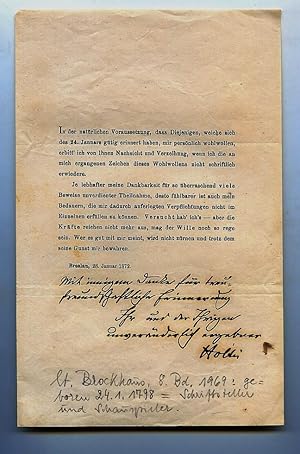 In der natürlichen Voraussetzung, dass Diejenigen, welche sich
des 24. Januars gütig erinnert haben, mir persönlich wohlwollen,
erbitt' ich von Ihnen Nachsicht und Verzeihung, wenn ich die an
mich ergangenen Zeichen dieses Wohlwollens nicht schriftlich
erwiedere.
Je lebhafter meine Dankbarkeit für so überraschend viele
Beweise unverdienter Theilnahme, desto fühlbarer ist auch mein
Bedauern, die mir dadurch auferlegten Verpflichtungen nicht im
Einzelnen erfüllen zu können. Versucht hab' ich's — aber die
Kräfte reichen nicht mehr aus, mag der Wille noch so rege
sein. Wer es gut mit mir meint, wird nicht zürnen und trotz dem
seine Gunst mir bewahren.
Breslau, 28. Januar 1872.
Mit innigem Danke für
freundschaftliche Erinnerung
Ihr und der Ihrigen
unveränderlich ergebener
Holtei
Lt. Brockhaus, 8. Bd. 1969: ge-
boren 24.1.1798 = Schriftsteller
und Schauspieler.